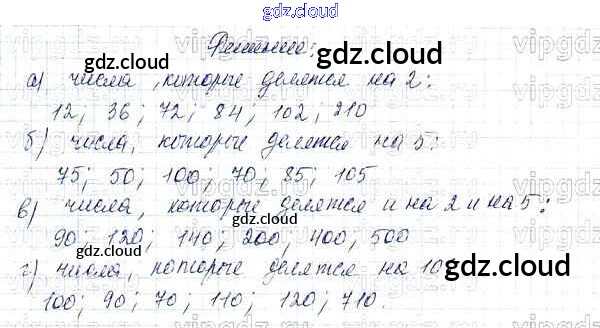 gdz.cloud
Решение:
gdz.cloud
а) числа, которые делятся на 2:
12; 36; 72; 84; 102; 210
б) числа, которые делятся на 5:
75; 50; 100; 70; 85; 105
gdz.cloud
в) числа, которые делятся и на 2 и на 5:
90; 120; 140; 200; 400; 500
gdz.cloud
г) числа, которые делятся на 10
gdz.cloud
100; 90; 70; 110; 120; 710.